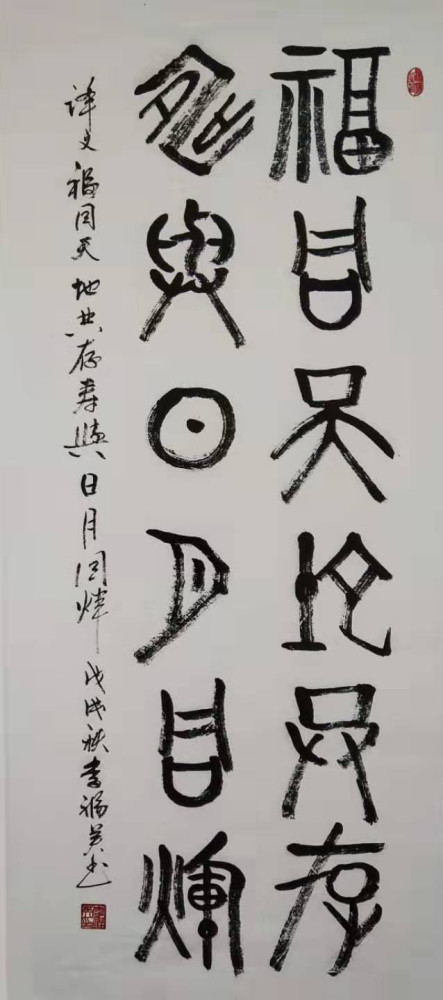 福同天地共存
寿與日月同煇
译文 福同天地共存寿與日月同煇 戊戌秋李福书